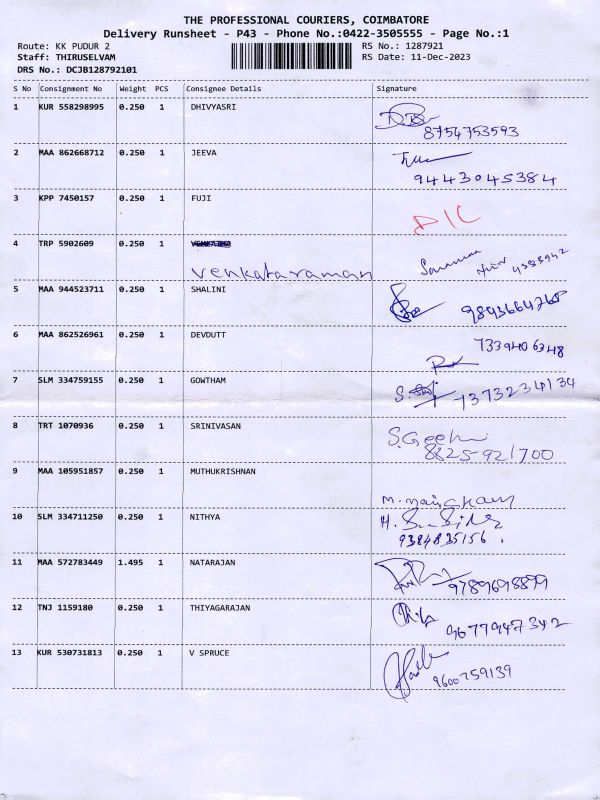 THE PROFESSIONAL COURIERS, COIMBATORE
Delivery Runsheet - P43 - Phone No.:0422-3505555 - Page No.:1
Route: KK PUDUR 2 RS No.: 1287921
Staff: THIRUSELVAM RS Date: 11-Dec-2023
DRS No.: DCJB128792101
S No Consignment No Weight PCS Consignee Details Signature
1 KUR 558298995 0.250 1 DHIVYASRI
8754753593
2 MAA 862668712 0.250 1 JEEVA
9443045384
3 KPP 7450157 0.250 1 FUJI
4 TRP 5902609 0.250 1
Venkataraman
5 MAA 944523711 0.250 1 SHALINI
6 MAA 862526961 0.250 1 DEVDUTT
7339406348
7 SLM 334759155 0.250 1 GOWTHAM
S. 7373234134
8 TRT 1070936 0.250 1 SRINIVASAN
S.Geetha
8825921700
9 MAA 105951857 0.250 1 MUTHUKRISHNAN
10 SLM 334711250 0.250 1 NITHYA
9384835156.
11 MAA 572783449 1.495 1 NATARAJAN
9789698899
12 TNJ 1159180 0.250 1 THIYAGARAJAN
9677947342
13 KUR 530731813 0.250 1 V SPRUCE
9600259139